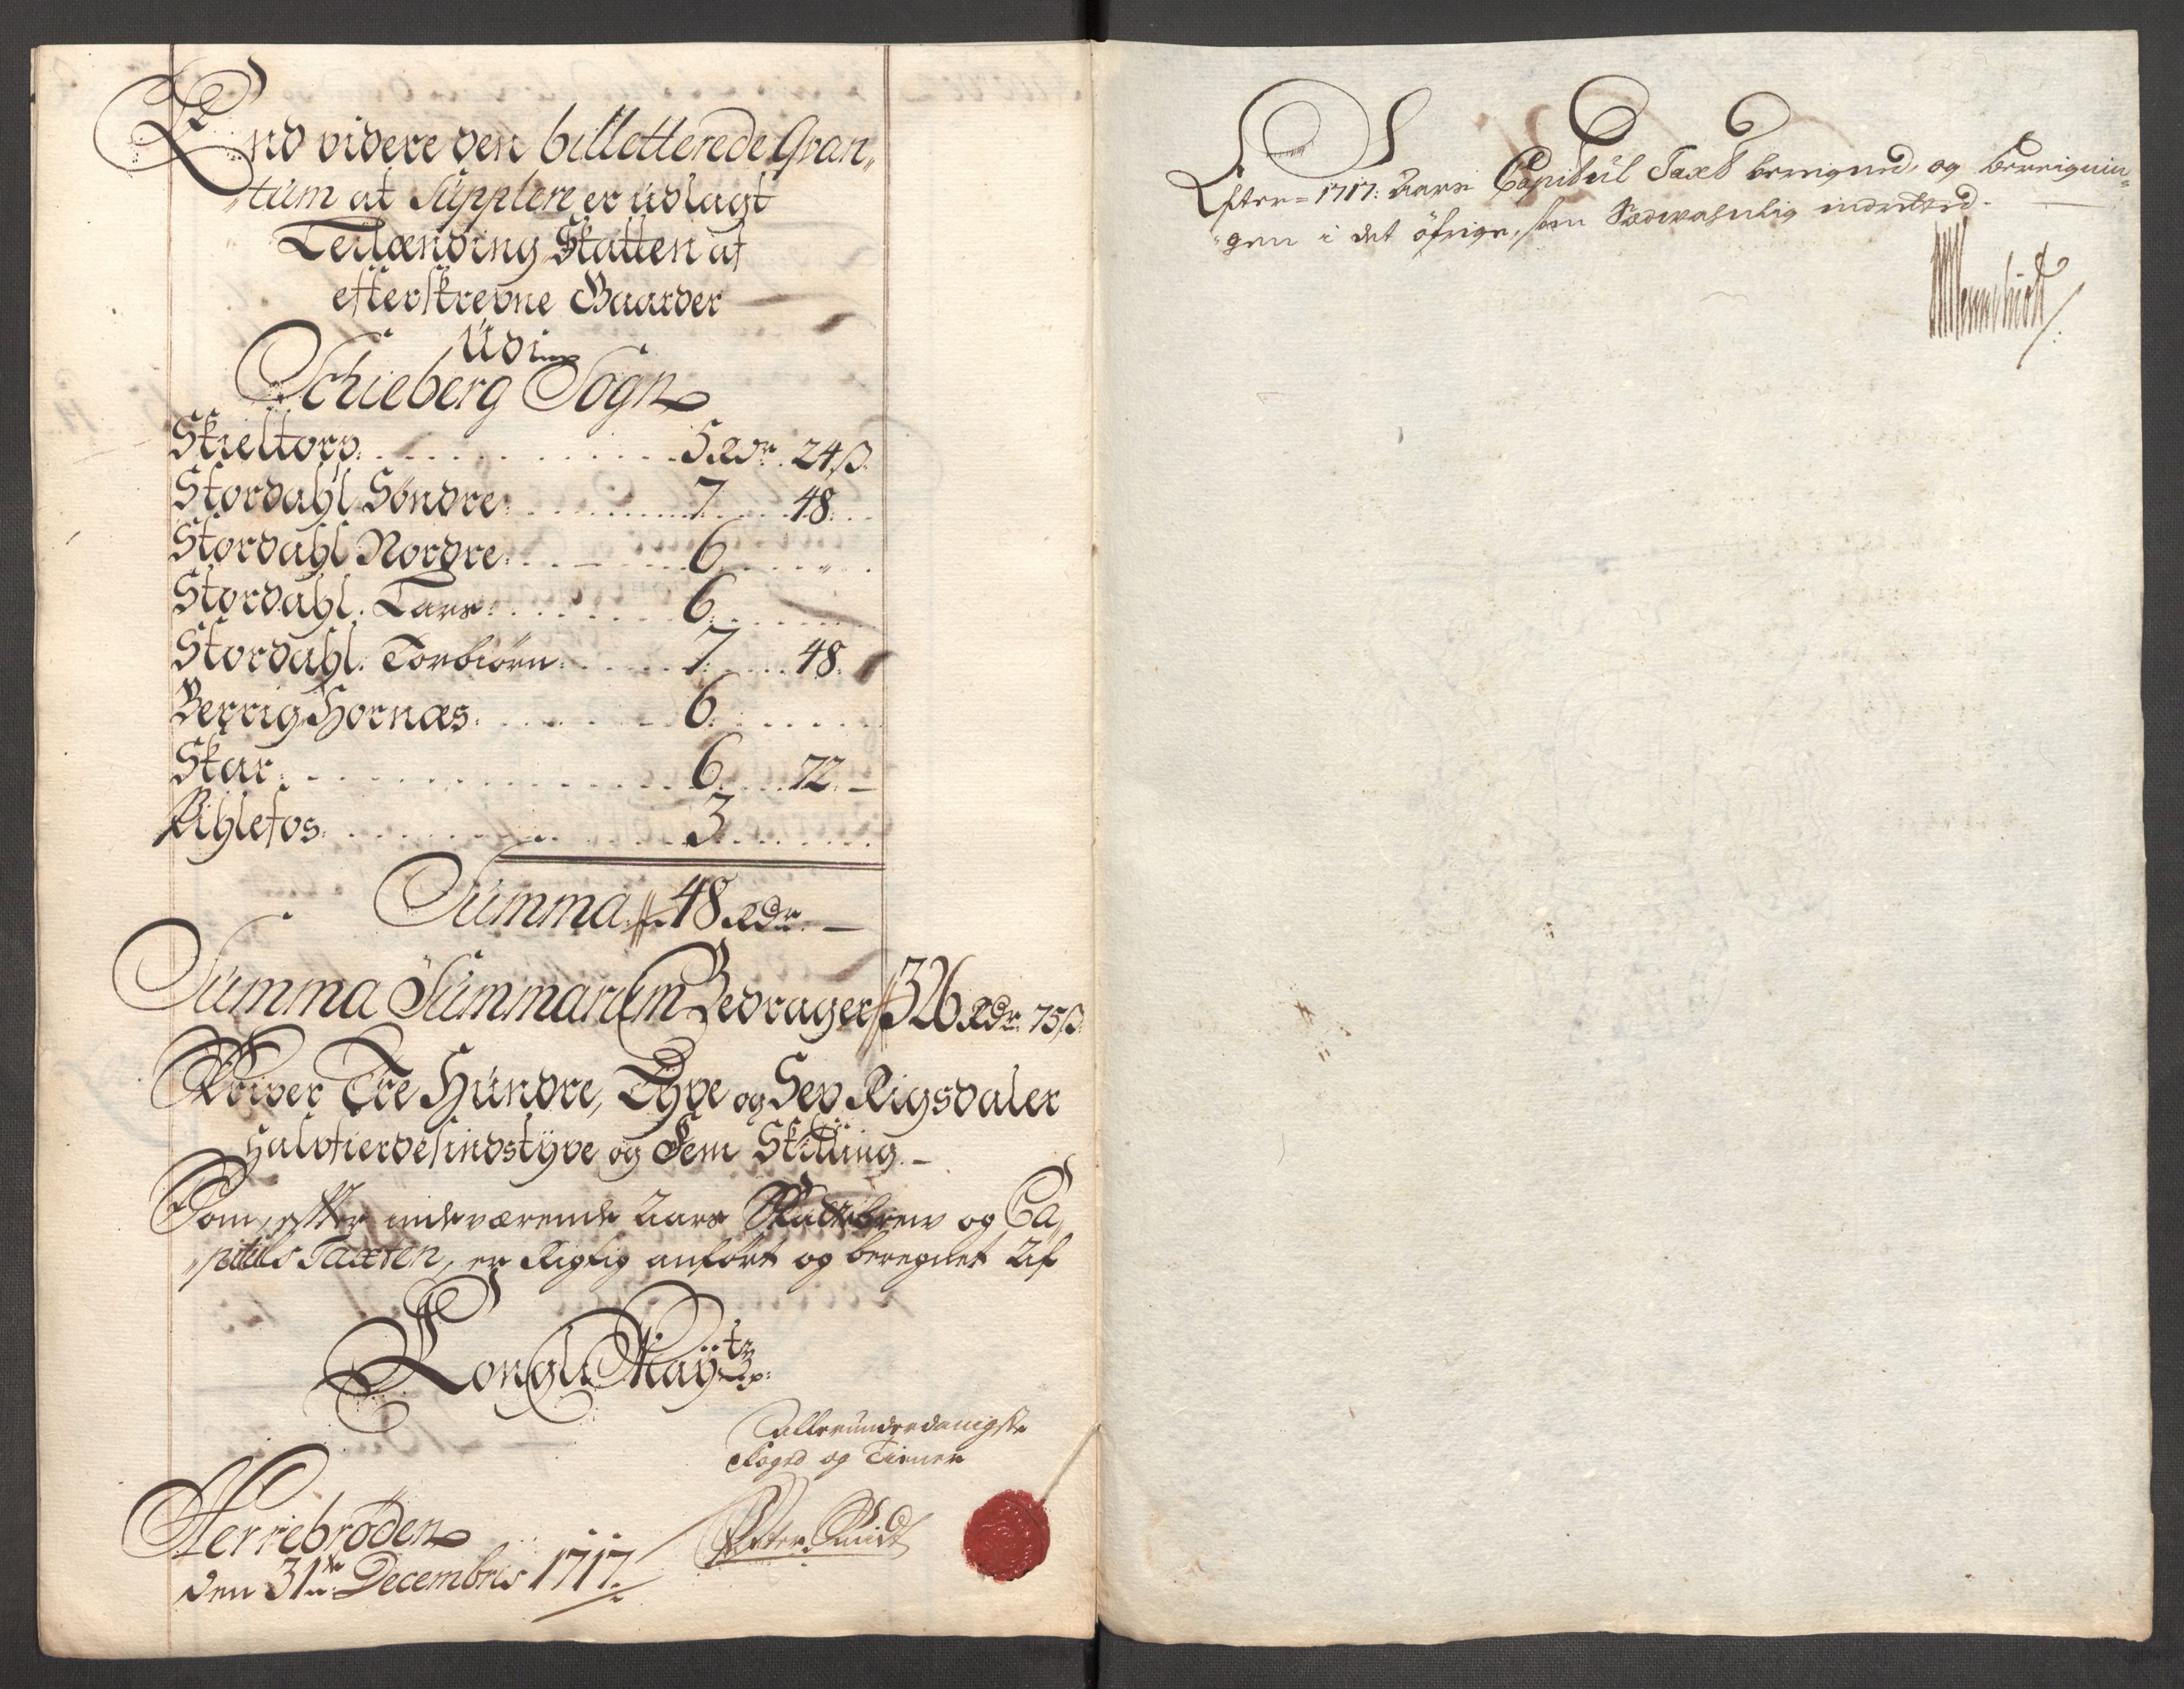 End videre den billetterede Qvan„
„tum at Supplere er udlagt
Leilænding Skatten af
efterskrevne Gaarder
Udi
Schieberg Sogn
Skieltorp: 5 Rdr. 24 ß.
Stordahl Søndre: 7 48.
Stordahl Nordre: 6. „
Stordahl. Lars: 6
Stordahl. Torbiørn: 7 48.
Berrig Hornæs. 6.
Skar: 6. 72. —
Kihlefos. 3
Summa 48 Rdr. —
Summa Summarum Bedrager 326 Rdr. 75 ß.
Skriver Tre Hundre, Tyve og Sex Rigsdaler
Halvfierdesindstyve og Fem Skilling. —
Som, efter indeværende Aars Skattebrew og Ca„
„pituls Taxten, er Rigtig anført og beregnet Af
Kongl: Maÿ:tz
allerunderdanigste
Foged og Tiener
Peter Smidt
Herrebrøden
den 31te Decembris 1717.
Efter 1717: Aars Capitul Taxt beregned, og Bereignin„
„gen i det öfrige, som Sædvahnlig indretted.